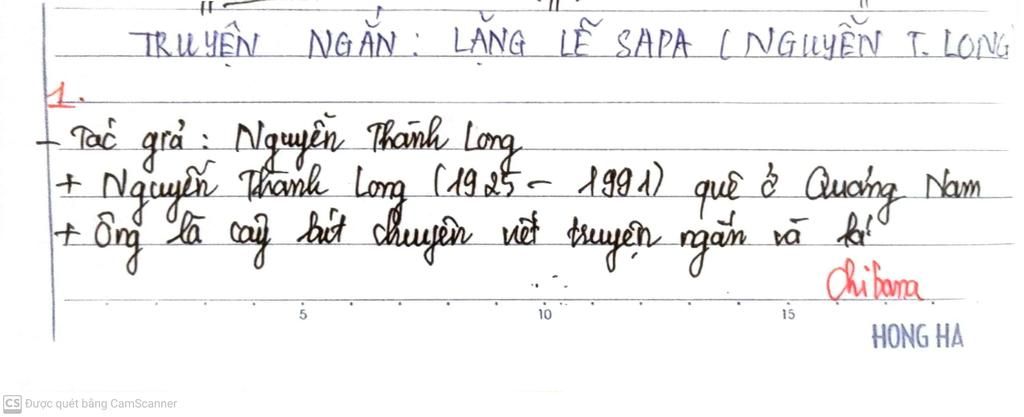 TRUYỆN NGẮN: LẶNG LẼ SAPA (NGUYỄN T. LONG
1.
- Tác giả: Nguyễn Thành Long
+ Nguyễn Thành Long (1925 - 1991) quê ở Quảng Nam
+ Ông là cây bút chuyên viết truyện ngắn và kí
Chibana
5 10 15
HONG HA
CS Được quét bằng CamScanner